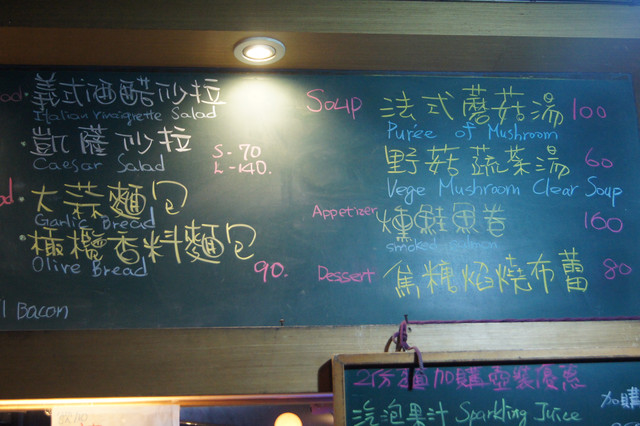 義式油醋沙拉
Italian vinaigrette Salad
凱薩沙拉
Caesar Salad
S-70
L-140.
大蒜麵包
Garlic Bread
橄欖香料麵包
Olive Bread
90.
Bacon
Soup
法式蘑菇湯 100
Purée of Mushroom
野菇蔬菜湯 60
Vege Mushroom Clear Soup
Appetizer 燻鮭魚卷 160
smoked salmon
Dessert 焦糖焰燒布蕾 80
加購
汽泡果汁 Sparkling Juice